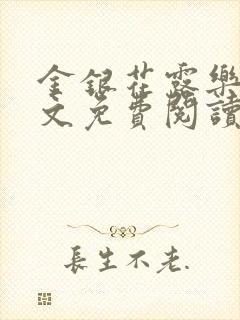 金銀花露樂
文免費閱讀
長生不老.